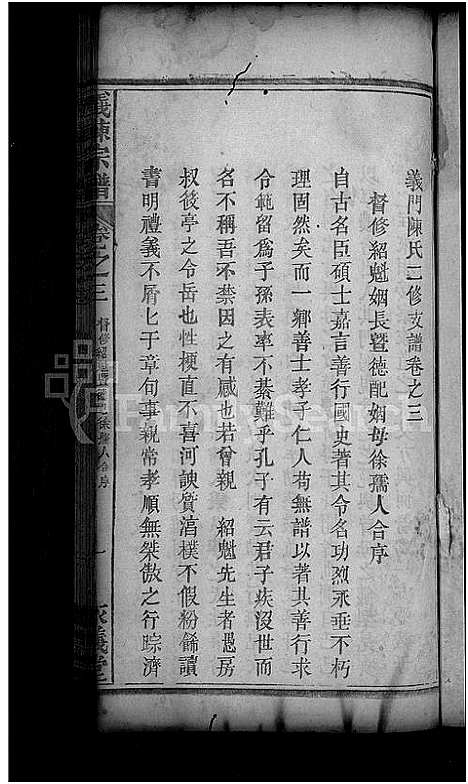 義門陳氏二修支譜卷之三
督修紹魁姻長暨德配姻母徐孺人合序
自古名臣碩士嘉言善行國史著其令名功烈永垂不朽
理固然矣而一鄉善士孝子仁人苟無譜以著其善行求
令範留爲子孫表率不綦難乎孔子有云君子疾沒世而
名不稱吾不禁因之有感也若曾親 紹魁先生者愚房
叔後亭之令岳也性梗直不喜河諛質湻樸不假粉餙讀
書明禮義不屑匕于章句事親常孝順無桀傲之行踪濟
義陳宗譜
卷之三
督修紹魁 徐孺人合序
一
義堂
FamilySearch